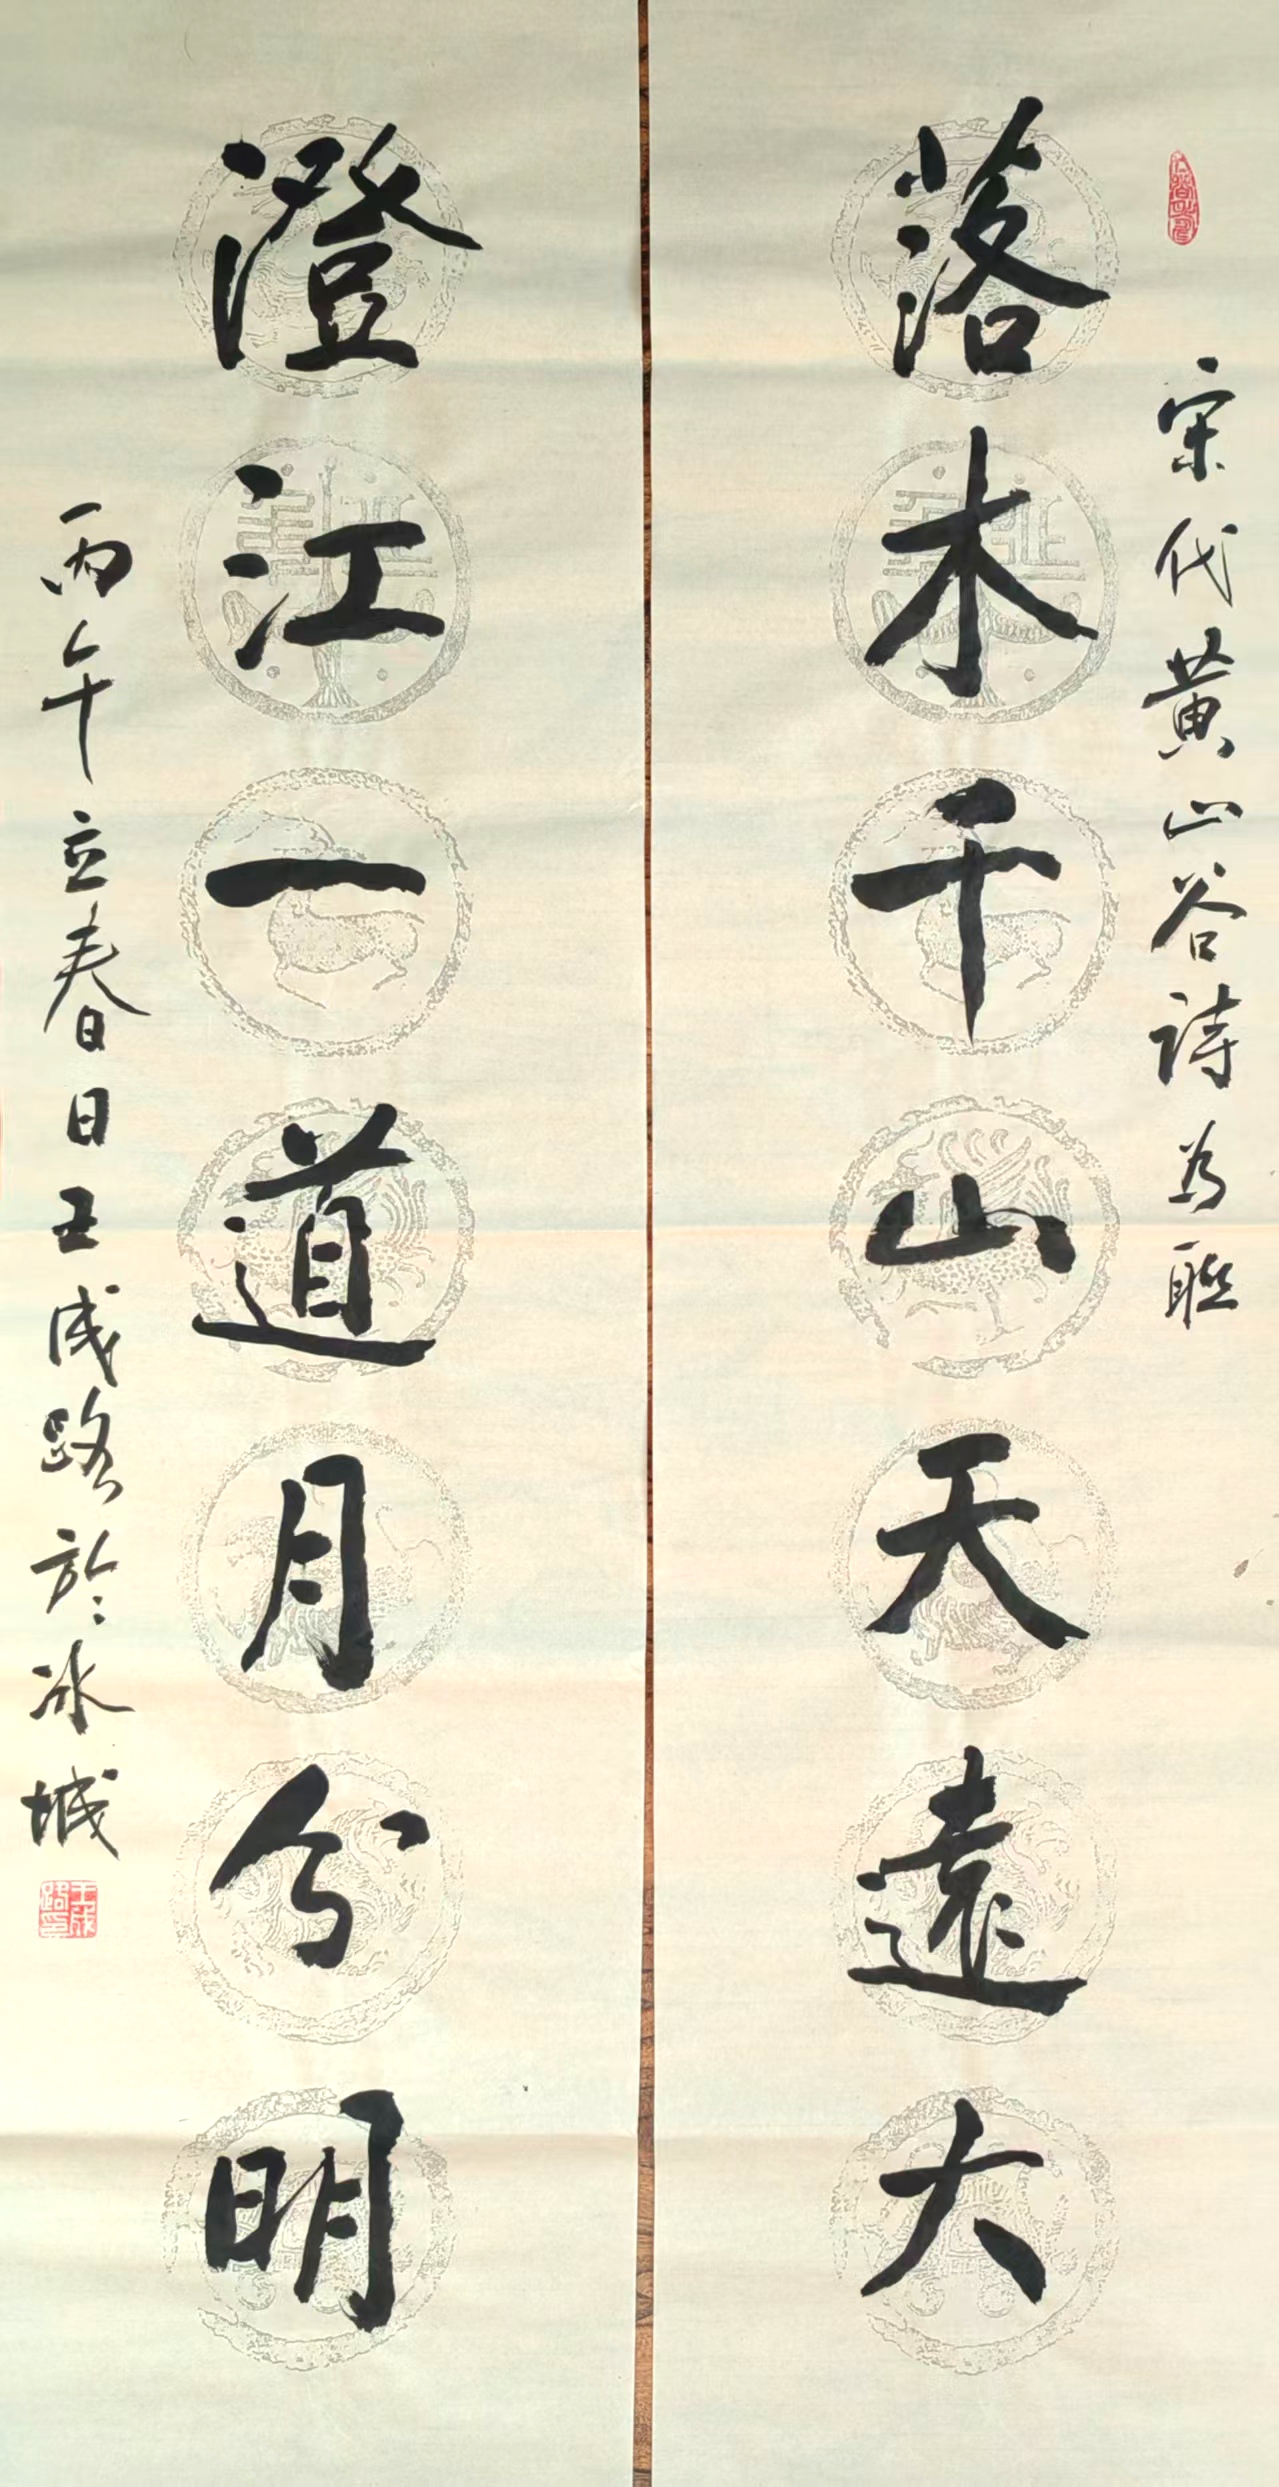 宋代黄山谷诗为联
落木千山天遠大
澄江一道月分明
丙午立春日王成路於冰城
王成路印